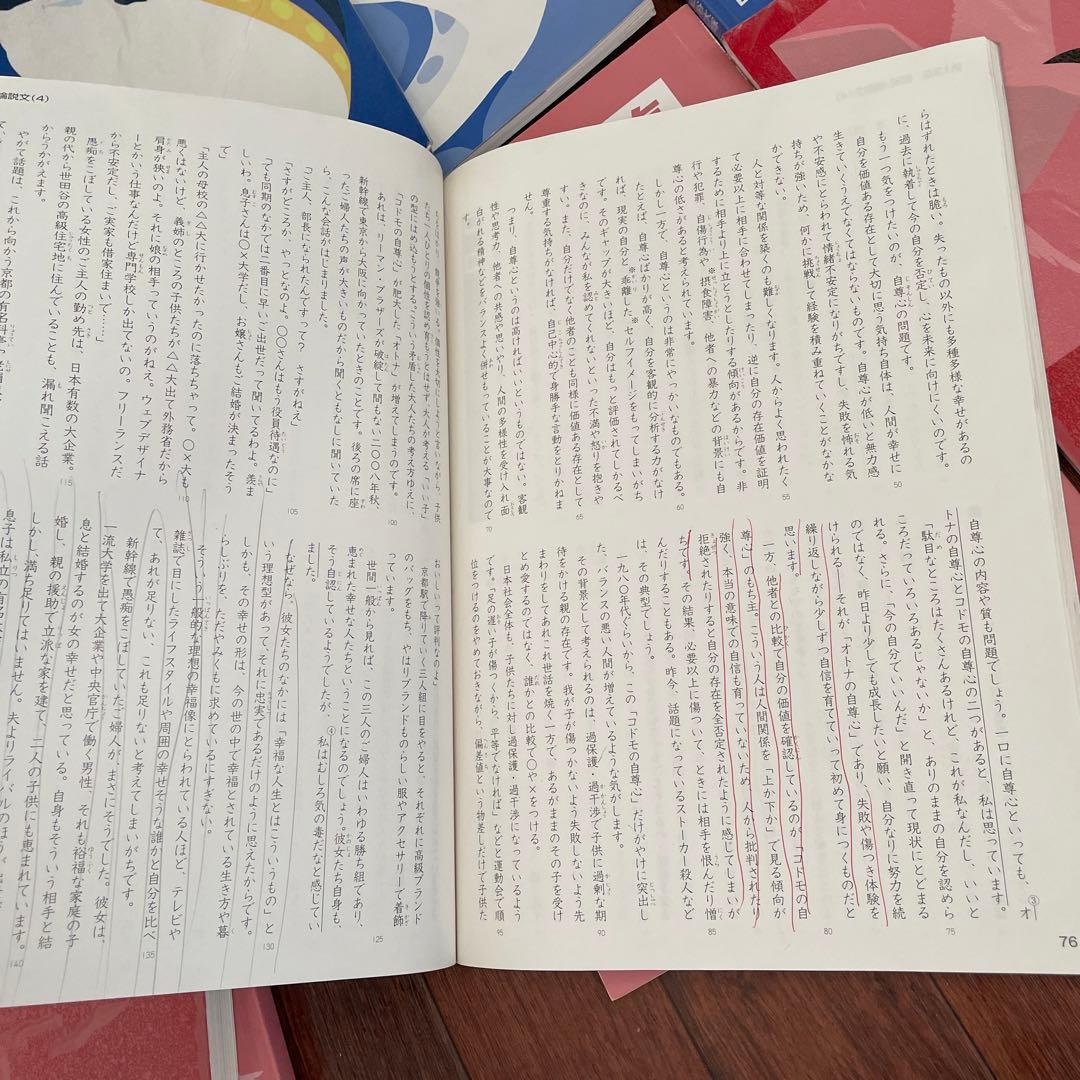 76
らはずれたときは脆い。失ったもの以外にも多種多様な幸せがあるの
に、過去に執着して今の自分を否定し、心を未来に向けにくいのです。
もう一つ気をつけたいのが、自尊心の問題です。
自分を価値ある存在として大切に思う気持ち自体は、人間が幸せに
生きていくうえでなくてはならないものです。自尊心が低いと無力感
や不安感にとらわれて情緒不安定になりがちですし、失敗を怖れる気
持ちが強いため、何かに挑戦して経験を積み重ねていくことがなかな
かできない。
人と対等な関係を築くのも難しくなります。人からよく思われたく
て必要以上に相手に合わせてしまったり、逆に自分の存在価値を証明
するために相手より上に立とうとしたりする傾向があるからです。非
行や犯罪、自傷行為や※摂食障害、他者への暴力などの背景にも自
尊心の低さがあると考えられています。
しかし一方で、自尊心というのは非常にやっかいなものでもある。
たとえば、自尊心ばかりが高く、自分を客観的に分析する力がなけ
れば、現実の自分と※乖離した※セルフイメージをもってしまいがち
です。そのギャップが大きいほど、自分はもっと評価されてしかるべ
きなのに、みんなが私を認めてくれないといった不満や怒りを抱きや
すい。また、自分だけでなく他者のことも同様に価値ある存在として
尊重する気持ちがなければ、自己中心的で身勝手な言動をとりかねま
せん。
つまり、自尊心というのは高ければいいというものではない。客観
性や思考力、他者への共感や思いやり、人間の多様性を受け入れ面
白がれる精神などをバランスよく併せもっていることが大事なので
50
55
60
65
70
自尊心の内容や質も問題でしょう。一口に自尊心といっても、③オ
トナの自尊心とコドモの自尊心の二つがあると、私は思っています。
「駄目なところはたくさんあるけれど、これが私なんだし、いいと
ころだっていろいろあるじゃないか」と、ありのままの自分を認めら
れる。さらに、「今の自分でいいんだ」と開き直って現状にとどまる
のではなく、昨日より少しでも成長したいと願い、自分なりに努力を続
けられる――それが「オトナの自尊心」であり、失敗や傷つき体験を
繰り返しながら少しずつ自信を育てていって初めて身につくものだと
思います。
一方、他者との比較で自分の価値を確認しているのが、「コドモの自
尊心」のもち主。こういう人は人間関係を「上か下か」で見る傾向が
強く、本当の意味での自信も育っていないため、人から批判されたり
拒絶されたりすると自分の存在を全否定されたように感じてしまいが
ちです。その結果、必要以上に傷ついて、ときには相手を恨んだり憎
んだりすることもある。昨今、話題になっているストーカー殺人など
は、その典型でしょう。
一九八〇年代ぐらいから、この「コドモの自尊心」だけがやけに突出し
た、バランスの悪い人間が増えているような気がします。
その背景として考えられるのは、過保護・過干渉で子供に過剰な期
待をかける親の存在です。我が子が傷つかないよう失敗しないよう先
まわりをしてあれこれ世話を焼く一方で、あるがままのその子を受け
とめ愛するのではなく、誰かとの比較で〇や×をつける。
日本社会全体も、子供たちに対し過保護・過干渉になっているよう
です。「足の遅い子が傷つくから、平等でなければ」などと運動会で順
位をつけるのをやめておきながら、偏差値という物差しだけで子供た
75
80
85
90
95
論説文(4)
ちを区分けし、競争を強いる。個性を大切にしようと言いながら、子供
たち一人ひとりの個性を認め育もうとはせず、大人が考える「いい子」
の型にはめ込もうとする。こういう矛盾した大人たちの考え方ゆえに、
「コドモの自尊心」が肥大した「オトナ」が増えてしまうのです。
あれは、リーマン・ブラザーズが破綻して間もない二〇〇八年秋、
新幹線で東京から大阪に向かっていたときのことです。後ろの席に座
ったご婦人たちの声が大きいものだから聞くともなしに聞いていた
ら、こんな会話がはじまりました。
「ご主人、部長になられたんですって? さすがねえ」
「さすがどころか、やっとなのよ。〇〇さんはもう役員待遇なのに」
「でも同期のなかでは二番目に早いご出世だって聞いてるわよ。羨ま
しいわ。息子さんは〇×大学だし、お嬢さんもご結婚が決まったそう
で」
「主人の母校の△△大に行かせたかったのに落ちちゃって。〇×大も
悪くはないけど、義姉のところの子供たちが△△大出で外務省だから
肩身が狭いのよ。それに娘の相手っていうのがねえ。ウェブデザイナ
ーとかいう仕事なんだけど専門学校しか出てないの。フリーランスだ
から不安定だし、ご実家も借家住まいで……」
愚痴をこぼしている女性のご主人の勤め先は、日本有数の大企業。
親の代から世田谷の高級住宅地に住んでいることも、漏れ聞こえる話
からうかがえます。
やがて話題は、これから向かう京都の有名料亭
100
105
110
115
おいしいって評判なのよ」
京都駅で降りていく三人組に目をやると、それぞれに高級ブランド
のバッグをもち、やはりブランドものらしい服やアクセサリーで着飾
っています。
世間一般から見れば、この三人のご婦人はいわゆる勝ち組であり、
恵まれた幸せな人たちということになるのでしょう。彼女たち自身も、
そう自認しているようでしたが、④私はむしろ気の毒だなと感じてい
ました。
なぜなら、彼女たちのなかには「幸福な人生とはこういうもの」と
いう理想型があって、それに忠実であるだけのように思えたからです。
しかも、その幸せの形は、今の世の中で幸福とされている生き方や暮
らしぶりを、ただやみくもに求めているにすぎない。
そういう一般的な理想の幸福像にとらわれている人ほど、テレビや
雑誌で目にしたライフスタイルや周囲の幸せそうな誰かと自分を比べ
て、あれが足りない、これも足りないと考えてしまいがちです。
新幹線で愚痴をこぼしていたご婦人が、まさにそうでした。彼女は、
一流大学を出て大企業や中央官庁で働く男性、それも裕福な家庭の子
息と結婚するのが女の幸せだと思っている。自身もそういう相手と結
婚し、親の援助で立派な家を建て、二人の子供にも恵まれています。
しかし、満ち足りてはいません。夫よりライバルのほうが
息子は私立の有名大
125
130
135
140